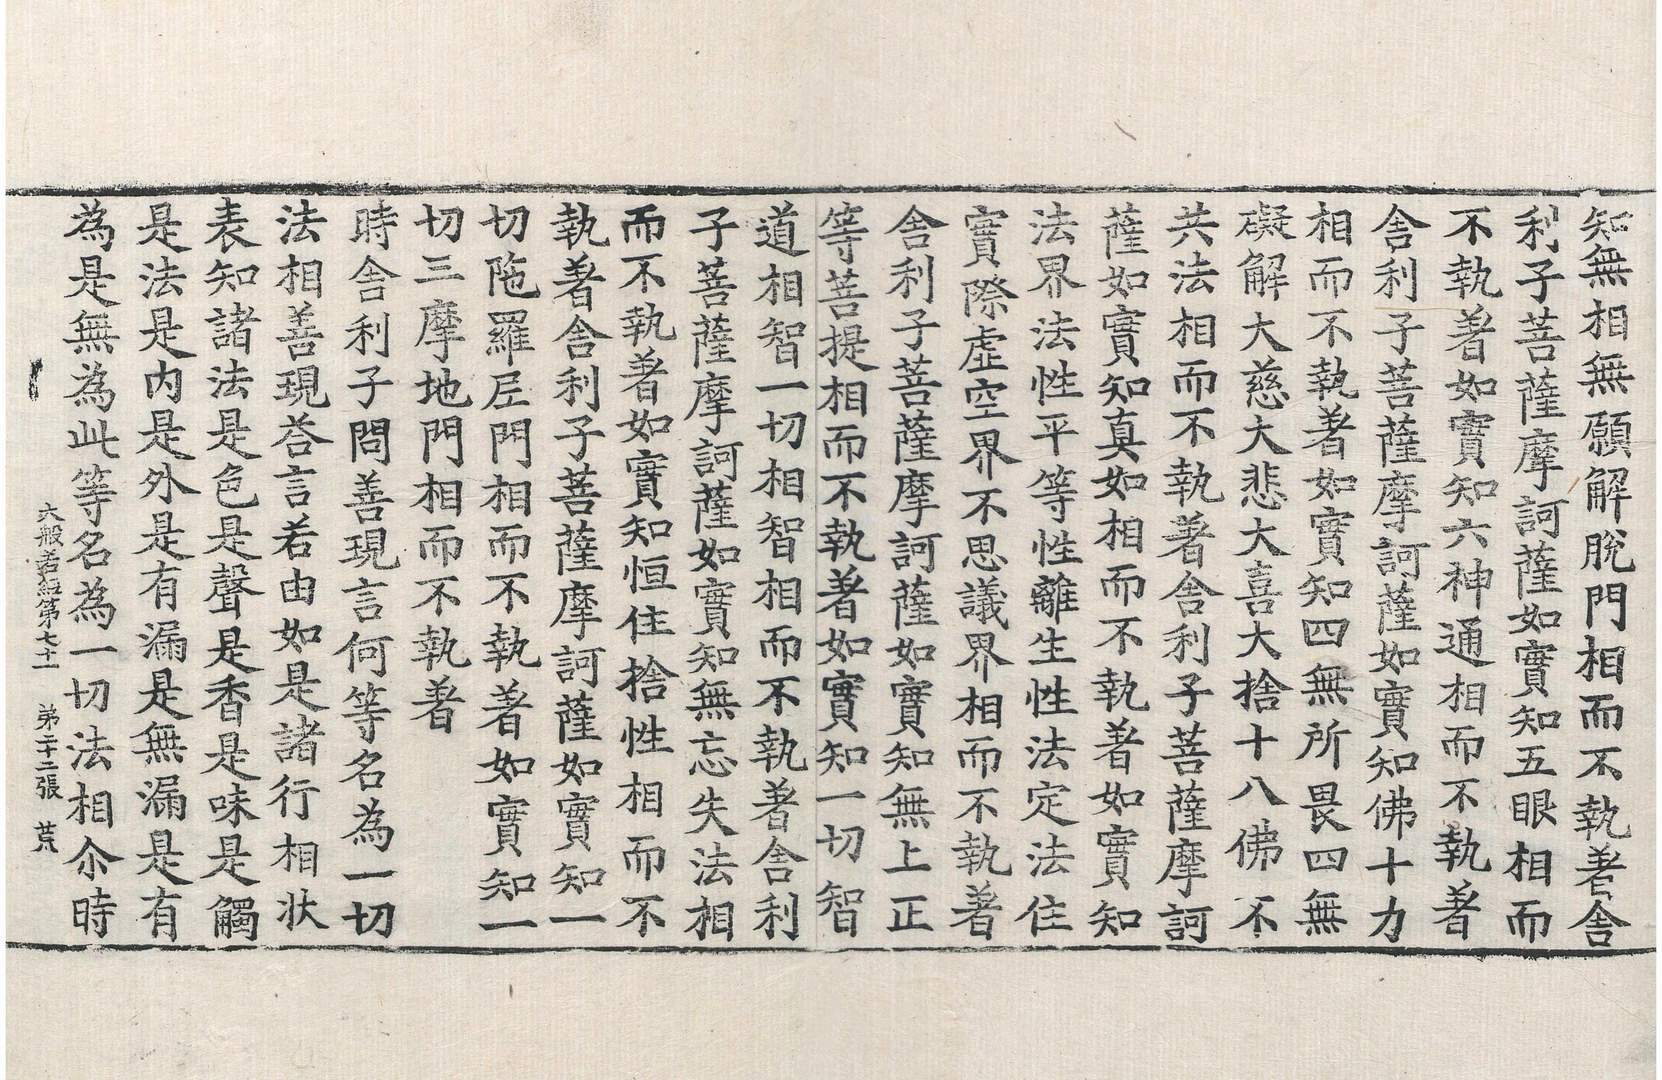 知無相無願解脫門相而不執著舍
利子菩薩摩訶薩如實知五眼相而
不執著如實知六神通相而不執著
舍利子菩薩摩訶薩如實知佛十力
相而不執著如實知四無所畏四無
礙解大慈大悲大喜大捨十八佛不
共法相而不執著舍利子菩薩摩訶
薩如實知真如相而不執著如實知
法界法性平等性離生性法定法住
實際虛空界不思議界相而不執著
舍利子菩薩摩訶薩如實知無上正
等菩提相而不執著如實知一切智
道相智一切相智相而不執著舍利
子菩薩摩訶薩如實知無忘失法相
而不執著如實知恒住捨性相而不
執著舍利子菩薩摩訶薩如實知一
切陁羅尼門相而不執著如實知一
切三摩地門相而不執著
時舍利子問善現言何等名為一切
法相善現答言若由如是諸行相狀
表知諸法是色是聲是香是味是觸
是法是內是外是有漏是無漏是有
為是無為此等名為一切法相尒時
大般若經第七十一 第二十二張 荒